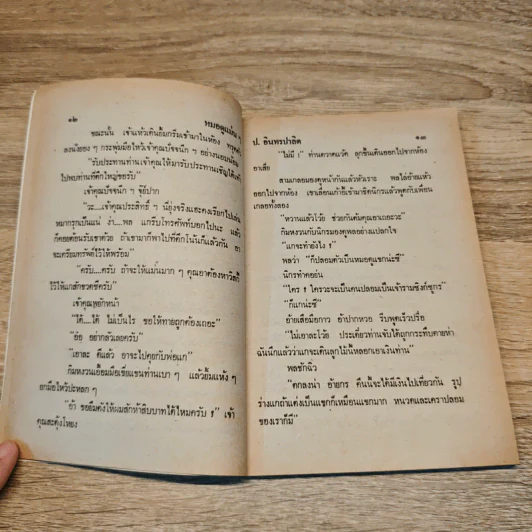 ๑๒
หมอดูแม่น ๆ
ขณะนั้น เจ้าแห้วเดินยิ้มกริ่มเข้ามาในห้อง ทรุดตัว
ลงนั่งยอง ๆ กระพุ่มมือไหว้เจ้าคุณปัจจนึก ๆ อย่างนอบน้อม
"รับประทานท่านเจ้าคุณให้มารับประทานเชิญใต้เท้า
ไปพบท่านที่ตึกใหญ่ขอรับ"
เจ้าคุณปัจจนึก ๆ ชี้ปาก
"วะ....เจ้าคุณประสิทธิ์ ๆ นี่ยุ่งจริงแฮะคงเรียกไปเล่น
หมากรุกเป็นแน่ ง่า....พล แกรับโทรศัพท์บอกไปนะ แล้ว
ก็คอยต้อนรับเขาด้วย ถ้าเขามาก็พาไปที่ตึกโน้นก็แล้วกัน อา
จะเตรียมทรัพย์ไว้ให้พร้อม"
"ครับ....ครับ ถ้าจะให้แม่นมาก ๆ คุณอาต้องหาวิสกี้
ไว้ให้แกสักขวดซีครับ"
เจ้าคุณพยักหน้า
"ได้....ได้ ไม่เป็นไร ขอให้ทายถูกต้องเถอะ"
"อ้อ อยากลัวเลยครับ"
"เอาละ ดีแล้ว อาจะไปคุยกับพ่อแก"
กิมหงวนเอื้อมมือเขี่ยแขนท่านเบา ๆ แล้วยิ้มแห้ง ๆ
ยกมือไหว้ปะหลก ๆ
"อ้า ขอยืมตังให้ผมสักห้าสิบบาทได้ไหมครับ ?" เจ้า
คุณสะดุ้งโหยง
ป. อินทรปาลิต
๑๓
"ไม่มี !" ท่านตวาดแว้ด ลุกขึ้นเดินออกไปจากห้อง
อาเสี่ย
สามเกลอมองดูหน้ากันแล้วหัวเราะ พลไล่อ้ายแห้ว
ออกไปจากห้อง เขาเลื่อนเก้าอี้เข้ามาชิดนิกรแล้วพูดกับเพื่อน
เกลอทั้งสอง
"หวานแล้วโว้ย ช่วยกันต้มคุณอาเถอะวะ"
กิมหงวนกับนิกรมองดูพลอย่างแปลกใจ
"แกจะทำยังไง !"
พลว่า "ก็ปลอมตัวเป็นหมอดูแขกน่ะซี"
นิกรทำคอย่น
"ใคร ! ใครวะจะเป็นคนปลอมเป็นเจ้ารามซิงก์ซูกร"
"ก็แกน่ะซี"
อ้ายเสือมือกาว อ้าปากหวอ รีบพูดเร็วปรื๋อ
"ไม่เอาละโว้ย ประเดี๋ยวท่านจับได้ถูกกระทืบตายห่า
ฉันนึกแล้วว่าแกจะเดินลูกไม้นี้หลอกเอาเงินท่าน"
พลชักฉิว
"ตกลงน่า อ้ายกร คืนนี้จะได้มีเงินไปเที่ยวกัน รูป
ร่างแกถ้าแต่งเป็นแขกก็เหมือนแขกมาก หนวดและเคราปลอม
ของเราก็มี"